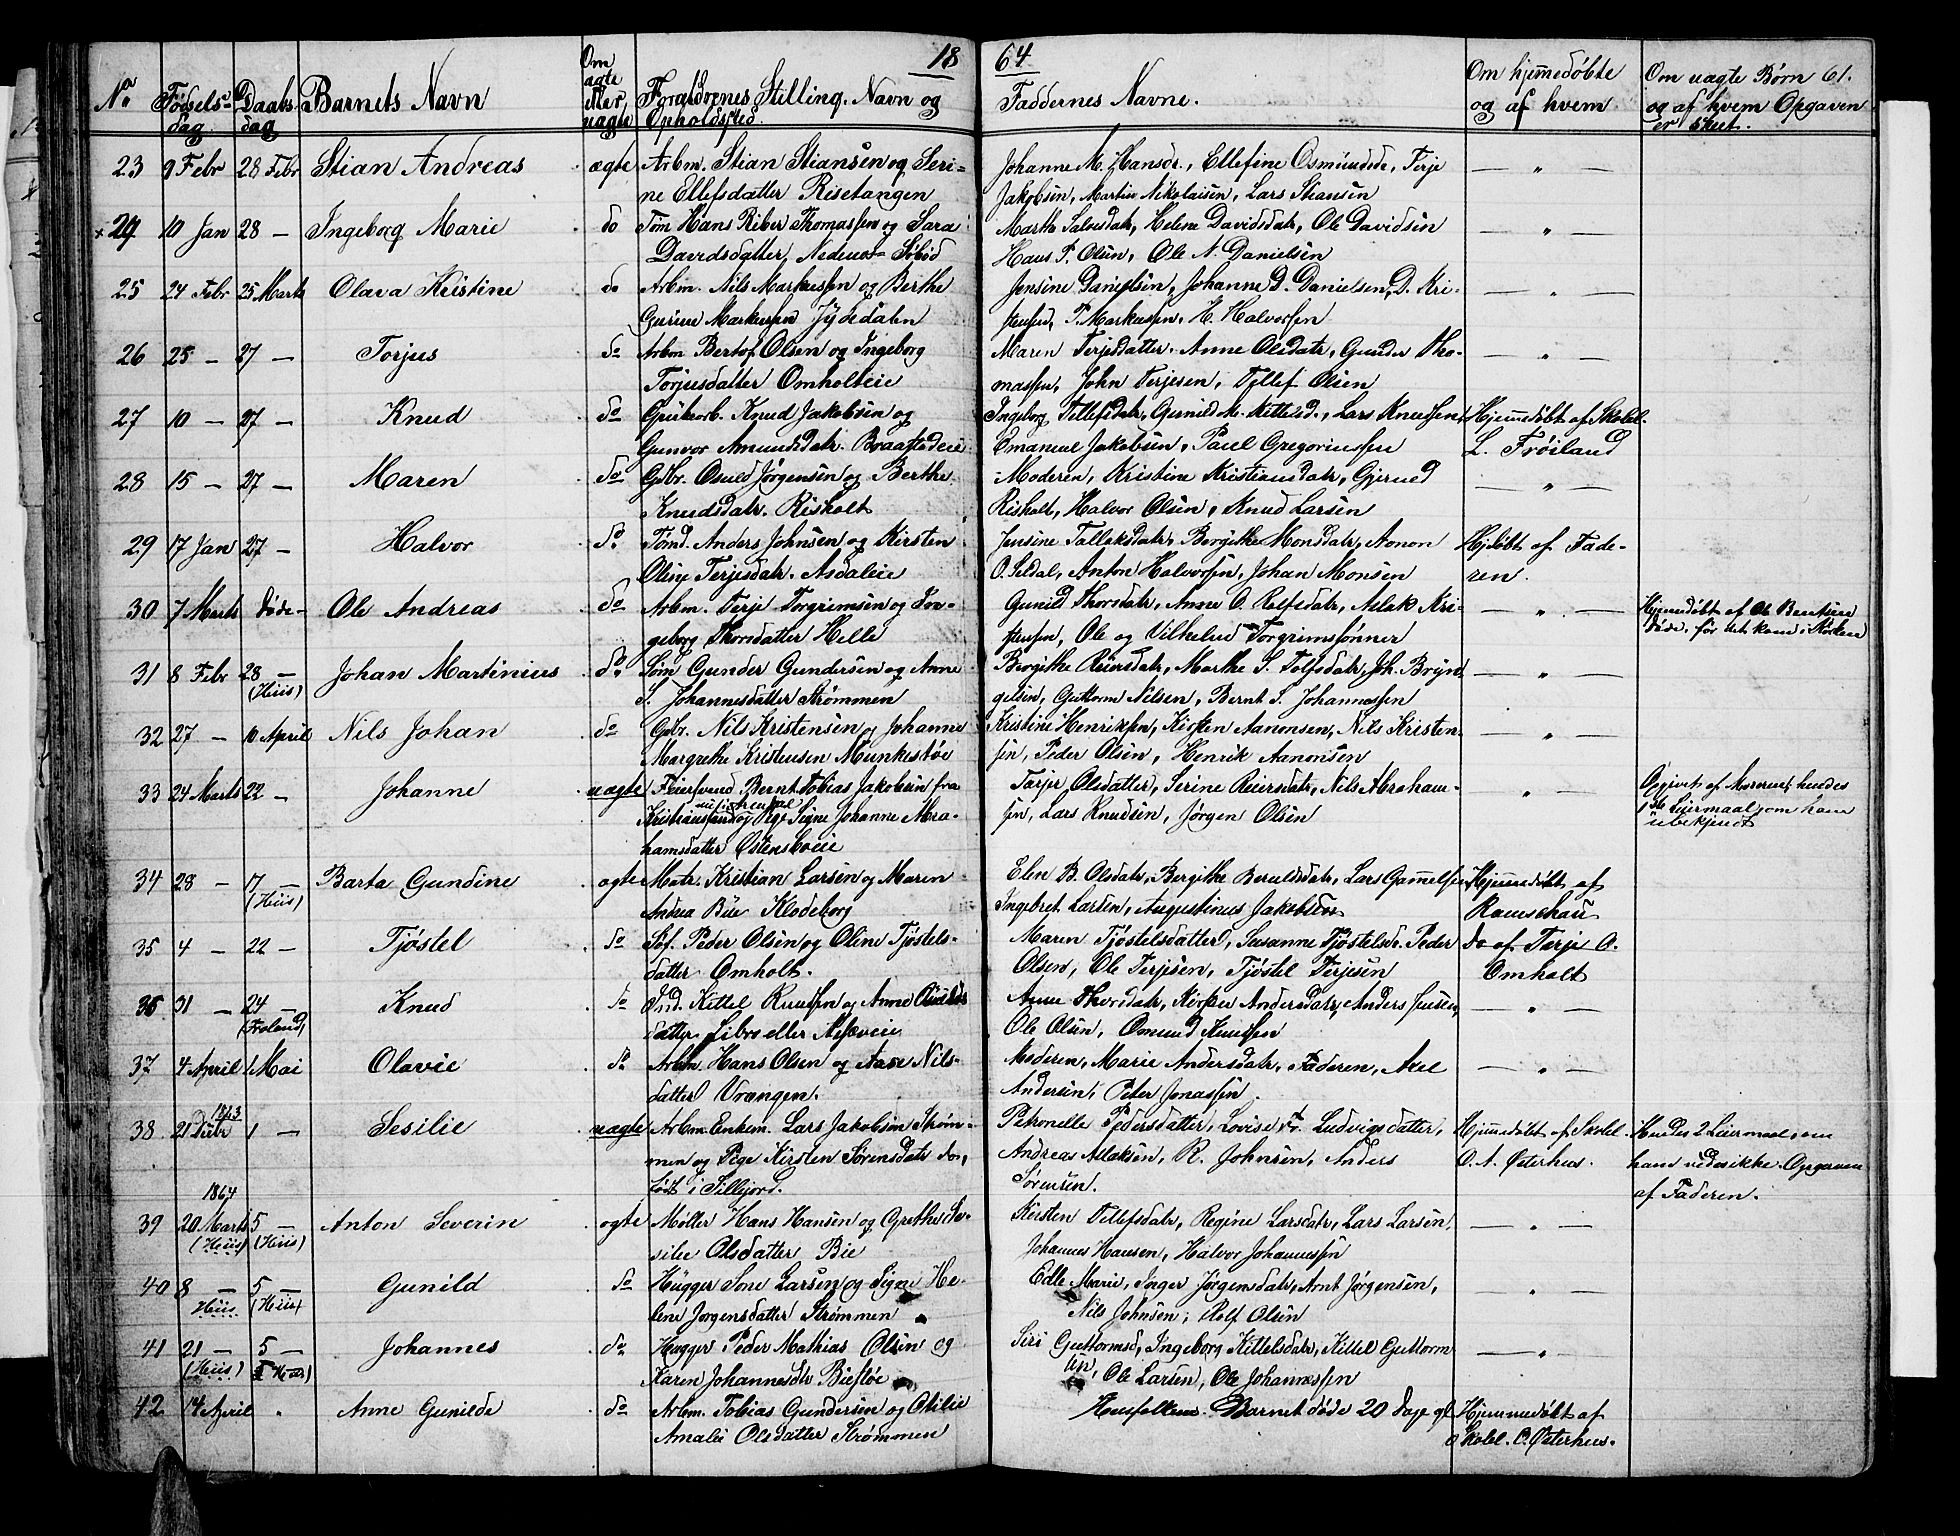 18 64
No Fødsels- Daabs- Barnets Navn Om Forældrenes Stilling, Navn og Faddernes Navne. Om hjemmedøbte Om uægte Børn 61.
dag dag ægte eller uægte Opholdssted og af hvem og af hvem Opgaven
er skeet.
23 9 Febr 28 Febr Stian Andreas ægte Arbm. Stian Stiansen og Seri- Johanne M. Hansdr, Ellefine Osmundsdr, Terje — " —
ne Ellefsdatter Risetangen Jakobsen, Martin Nikolaisen, Lars Stiansen
+ 24 10 Jan 28 — Ingeborg Marie do Tøm Hans Riber Thomassen og Sara Marthe Salvesdatr, Helene Davidsdatr, Ole Davidsen — " —
Davidsdatter, Hans P. Olsen, Ole N. Danielsen
25 24 Febr 25 Marts Olava Kristine do Arbm. Nils Markussen og Berthe Jensine Danielsen, Johanne D. Danielsen, D. Kri- — " —
Gurine Markussen Jydedalen stensen, P. Markussen, H. Halvorsen
26 25 — 27 — Torjus do Arbm Bertof Olsen og Ingeborg Maren Terjesdatter, Anne Olsdatr, Gunder Tho- — " —
Torjusdatter Omholteie massen, John Terjesen, Tellef Olsen
27 10 — 27 — Knud do Knud Jakobsen og Ingeborg Tellefsdatr, Gunild Kittelsd., Lars Knudsen, Hjemmedøbt af Skolel.
Gunvor Amundsdatr. Braastadeie Emanuel Jakobsen, Paul Gregoriussen L. Frøiland
28 15 — 27 — Maren do Gbr. Osuld Jørgensen og Berthe Moderen, Kristine Kristiansdatr, Gjerud — " —
Knudsdatr. Risholt Risholt, Halvor Olsen, Knud Larsen
29 17 Jan 27 — Halvor do. Tømd. Anders Johnsen og Kirsten Jensine Tallaksdatr, Bergithe Monsdatr, Aanon Hjdøbt af Fade-
Oline Terjesdatr. Asdaleie O. Seldal, Anton Halvorsen, Johan Monsen ren.
30 7 Marts døde — Ole Andreas do Arbm. Terje Torgrimsen og In- Gunild Thorsdatr, Anne O. Rolfsdatr, Aslak Kri- — " — Hjemmedøbt af Ole Bentsen
geborg Thorsdatter Helle stensen, Ole og Vilhelm Torgrimsønner døde, før det kom i Kirken
31 8 Febr 28 — Johan Martinius do. Søm Gunder Gundersen og Anne Bergithe Reiersdatr, Marthe S. Tolfsdatr, Jh. Bryn- — " —
(Hiis) S. Johannesdatter Strømmen gelsen, Guttorm Nilsen, Bernt S. Johannessen
32 27 — 10 April Nils Johan do Gbr. Nils Kristensen og Johanne Kristine Henriksen, Kirsten Aanonsen, Nils Kristen- — " —
Margrethe Kristensen Munkestøe sen, Peder Olsen, Henrik Aanonsen
33 24 Marts 22 — Johanne uægte Feiersvend Bernt Tobias Jakobsen fra Tarjer Olsdatter, Serine Reiersdatr, Nils Abraham- " — Opgivet af Moren, hendes
Kristianssund og Pige Signe Johanne Abra- sen, Lars Knudsen, Jørgen Olsen 1ste Leiermaal, om ham
hamsdatter Østensboeie ubekjendt
34 28 — 17 — Barta Gundine ægte Matr. Kristian Larsen og Maren Elen B. Olsdatr, Bergithe Beruldsdatr, Lars Gammelsen Hjemmedøbt af
(Hiis) Andrea Bie Klodeborg Ingebret Larsen, Augustinus Jakobsen Ramschau
35 4 — 22 — Tjøstel do Peder Olsen og Oline Tjøstels- Maren Tjøstelsdatter, Susanne Tjøstelsdr. Peder do af Terje O.
datter Omholt. Olsen, Ole Terjesen, Tjøstel Terjesen Omholt
36 31 — 24 — Knud do Ind. Kittel Knudsen og Anne Anne Thorsdatr, Kirsten Andersdatr, Anders Jensen, — " —
(Froland) datter Libro eller Ole Olsen, Osmund Knudsen
37 4 April 1 Mai Olavie do Arbm. Hans Olsen og Aase Nils- Moderen, Marie Andersdatr, Faderen, Axel — " —
datter Vrængen. Andersen, Peter Jonassen
1863
38 21 Decbr 1 — Sesilie uægte Arbm. Enkem. Lars Jakobsen Strøm- Petronelle Pedersdatter, Lovise Fr. Ludvigsdatter, Hjemmedøbt af Skolel. Hendes 2 Leiermaal, om
men og Pige Kirsten Sørensdatr do, Andreas Aslaksen, R. Johnsen, Anders O. A. Østerhus. ham vedes ikke. Opgaven
født i Sillejord. Sørensen. af Faderen.
1864
39 20 Marts 5 — Anton Severin ægte Møller Hans Hansen og Grethe Se- Kirsten Tellefsdatr, Regine Larsdatr, Lars Larsen, — " —
(Hiis) (Hiis) silie Olsdatter Bie Johannes Hansen, Halvor Johannessen
40 8 — 5 — Gunild do Hugger Sone Larsen og Signe He- Edle Marie, Inger Jørgensdatr, Arnt Jørgensen, — " —
Hiis (Hiis) lene Jørgensdatter Strømmen Nils Johnsen, Rolf Olsen
41 21 — 5 — Johannes do Hugger Peder Mathias Olsen og Siri Guttormsd, Ingeborg Kittelsdatr, Kittel Guttorm- — "
(Hiis) (Hiis) Karen Johannesdtr Biestøe sen, Ole Larsen, Ole Johannessen
42 14 April " Anne Gunilde do Arbm. Tobias Gundersen og Otilie Husfolkene. Barnet døde 20 Dage gl Hjemmedøbt af
Amalie Olsdatter Strømmen Skolel. O. Østerhus.